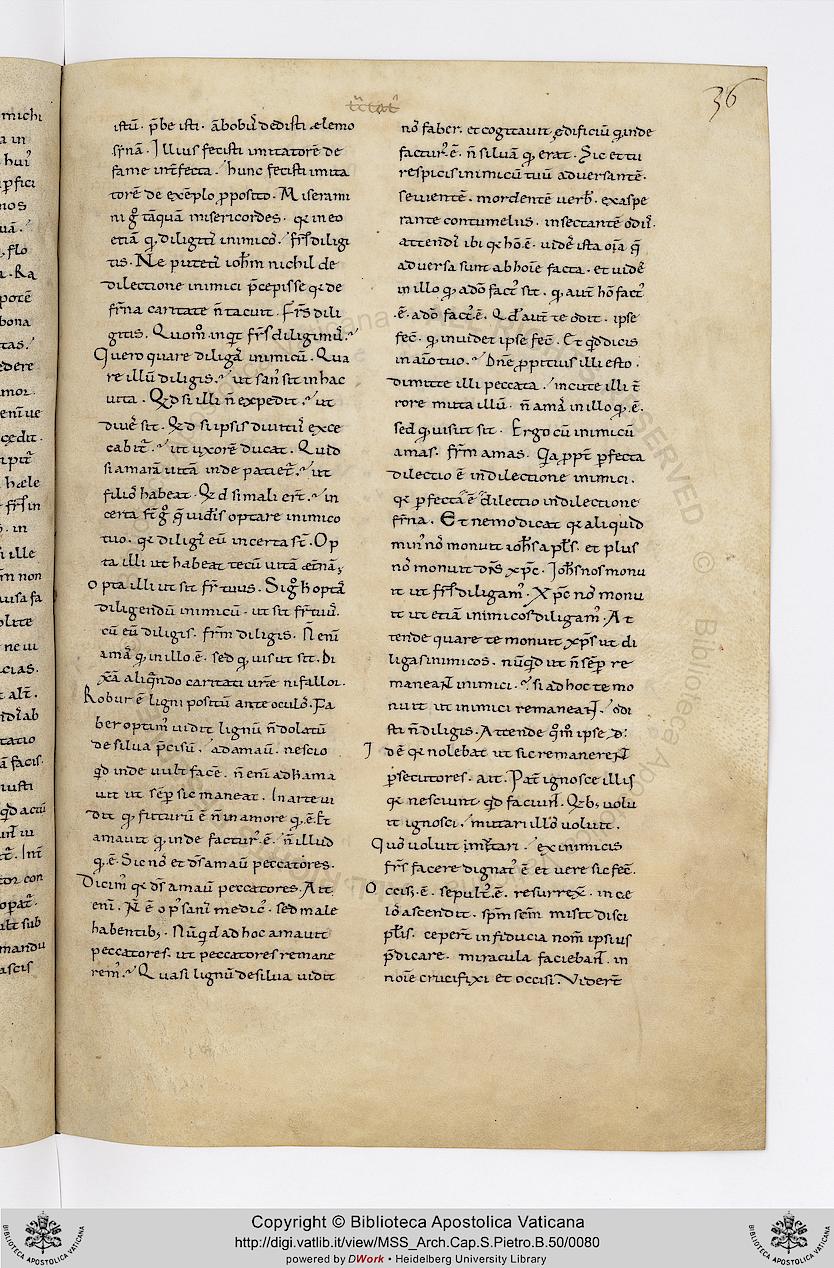 36
istū. p̄be isti. ābobꝰ dedisti ęlemo
sy̅nā. Illius fecisti imitatorē de
fame int̄fecta. hunc fecisti imita
torē de exēplo ꝓposito. Miserami
ni gͦ tāquā misericordes. qꝛ in eo
etiā q, diligitꝰ inimicoˢ. fr̄s diligi
tis. Ne putetꝰ ioh̄m nichil de
dilectione inimici p̄cepisse qꝛ de
fr̄na caritate n̄ tacuit. Fr̄s dili
gitis. Quom̄ inqͥt fr̄s diligimꝰ.
Quero quare diligaˢ inimicū. Qua
re illū diligis. ut sanꝰ sit in hac
uita. Qͥd si illi n̄ expedit. ut
diueˢ sit. Qͥd si ipsis diuitiis exce
cabit̄. ut uxorē ducat. Quid
si amarā uitā inde patiet̄. ut
filioˢ habeat. Qͥd si mali er̄t. in
certa st̄ gͦ q̄ uidis optare inimico
tuo. qꝛ diligis eū incerta st̄. Op
ta illi ut habeat tecū uitā ęt̄nā;
opta illi ut sit fr̄ tuus. Si gͦ h optaˢ
diligendū inimicū. ut sit fr̄ tuꝰ.
cū eū diligis. fr̄m diligis. N̄ eni
amaˢ q, in illo. ē. sed q, uis ut sit. Di
xi aliqn̄do caritati ur̄e ni falloi.
Robur ē ligni positū ante oculoˢ. Fa
ber optimꝰ uidit lignū n̄ dolatū
de silua p̄cisū. adamauͥ. nescio
qd inde uult facē. n̄ eni ad h ama
uit ut sēp sic maneat. In arte ui
dit q, futurū ē n̄ in amore q, ē. Et
amauit q, inde facturꝰ. ē. n̄ illud
q, ē. Sic noˢ et d̄s amauͥ peccatores.
Dicimꝰ qꝛ d̄s amauͥ peccatores. Ait
eni. N̄ ē opꝰ saniˢ medicꝰ. sed male
habentib;. Nūqͥd ad hoc amauit
peccatores. ut peccatores remane
remꝰ. Quasi lignū de silua uidit
noˢ faber. et cogitauit ędificiū q, inde
facturꝰ. ē. n̄ siluā q, erat. Sic et tu
respicis inimicū tuū aduersantē.
seuientē. mordentē uerbˢ. exaspe
rante contumeliis. insectantē odiis.
attendis ibi qꝛ hō. ē. uideˢ ista oi̅a q̄
aduersa sunt ab hoīe facta. et uideˢ
in illo q, a dō factꝰ sit. q, aut̄ hō factꝰ
.ē. a dō factꝰ. ē. Qͥd aut̄ te odit. ipse
fec̄. q, inuidet ipse fec̄. Et qd dicis
in aīo tuo. Dn̄e ꝓpitius illi esto.
dimitte illi peccata. incute illi t̄
rore muta illū. n̄ amaˢ in illo q, ē.
sed q, uis ut sit. Ergo cū inimicū
amas. fr̄m amas. Qͣ ꝓpt̄ ꝑfecta
dilectio ē inͥ dilectione inimici.
qꝛ ꝑfecta ē dilectio in dilectione
fr̄na. Et nemo dicat qꝛ aliquid
minꝰ noˢ monuit ioh̄s apl̄s. et plus
noˢ monuit dn̄s xp̄c. Ioh̄s nos monu
it ut fr̄s diligamꝰ. Xp̄c noˢ monu
it ut etiā inimicos diligamꝰ. At
tende quare te monuit xp̄s ut di
ligas inimicos. nūqͥd ut n̄ sēp re
maneant inimici. si ad hoc te mo
nuit ut inimici remaneant. odi
sti n̄ diligis. Attende qm̄ ipse di
dē qꝛ nolebat ut sic remanerent
ꝑsecutores. ait. Pat̄ ignosce illis
qꝛ nesciunt qd faciunt. Qͥb; uolu
it ignosci. mutari illoˢ uoluit.
Quoˢ uoluit mutari. ex inimicis
fr̄s facere dignatꝰ ē et uere sic fec̄.
Occisꝰ. ē. sepultꝰ. ē. resurrex̄. in cę
lōˢ ascendit. sp̄m sc̄m misit disci
pl̄is. ceper̄t in fiducia nom̄ ipsius
p̄dicare. miracula faciebant. in
noīe crucifixi et occisi. Vider̄t
Copyright © Biblioteca Apostolica Vaticana
http://digi.vatlib.it/view/MSS_Arch.Cap.S.Pietro.B.50/0080
powered by DWork • Heidelberg University Library